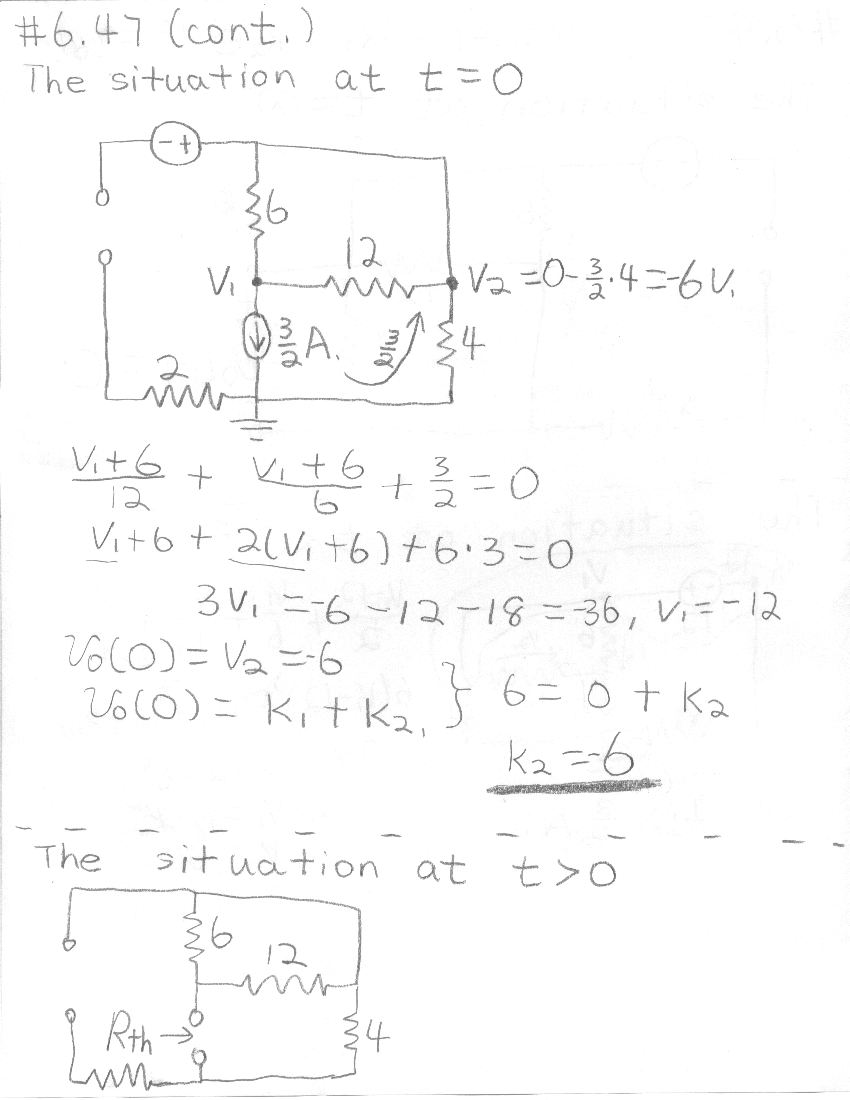 #6.47 (cont.)
The situation at t=0
-+
6
12
V₁
V₂ =0-3/2·4=-6V.
3/2 A.
3/2
4
2
V₁+6/12 + V₁+6/6 + 3/2 = 0
V₁+6 + 2(V₁+6)+6·3=0
3V₁ =-6-12-18=-36, V₁=-12
v₀(0)=V₂=-6
v₀(0)= K₁+K₂, } 6= 0 + K₂
K₂ =-6
The situation at t>0
6
12
Rth→
4